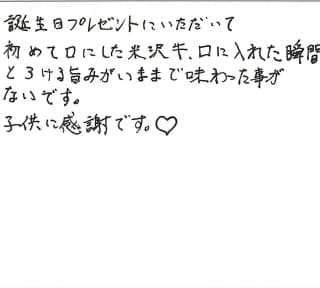 誕生日プレゼントにいただいて
初めて口にした米沢牛、口に入れた瞬間
とろける旨みがいままで味わった事が
ないです。
子供に感謝です。♡